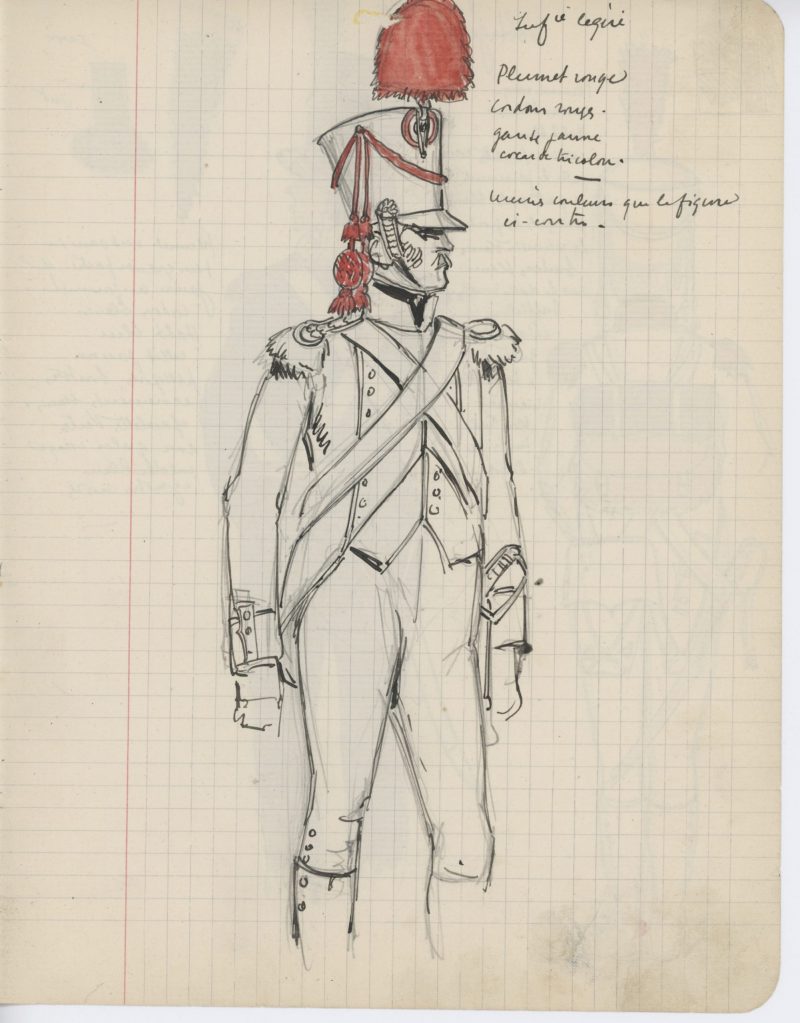 Infie légère
Plumet rouge
cordons rouges.
ganse jaune
cocarde tricolore.
mêmes couleurs que la figure
ci-contre.